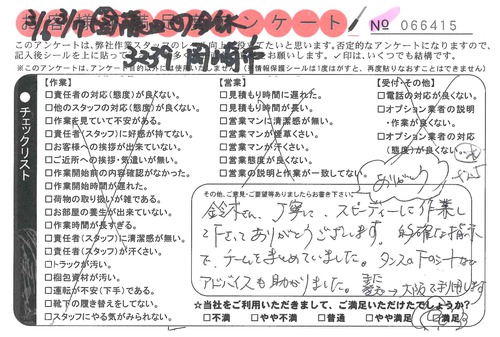 お客様満足度アンケート
No 066415
このアンケートは、弊社作業スタッフの
否定的なアンケートになりますので、
記入後シールを上に貼って
お願いします。✓印は、いくつでも結構です。
※このアンケートは、アンケート目的以外には使用いたしません。(情報保護シールは1度はがすと、再度貼りなおすことはできません)
3259 岡崎市
チェックリスト
【作業】
□責任者の対応(態度)が良くない。
□他のスタッフの対応(態度)が良くない。
□作業を見ていて不安がある。
□責任者(スタッフ)に好感が持てない。
□お客様への挨拶が出来ていない。
□ご近所への挨拶・気遣いが無い。
□作業開始前の内容確認がなかった。
□作業開始時間が遅れた。
□荷物の取り扱いが雑である。
□お部屋の養生が出来ていない。
□作業時間が長すぎる。
□責任者(スタッフ)に清潔感が無い。
□責任者(スタッフ)が汗くさい。
□トラックが汚い。
□梱包資材が汚い。
□運転が不安(下手)である。
□靴下の履き替えをしてない。
□スタッフにやる気がみられない。
【営業】
□見積もり時間に遅れた。
□見積もり時間が長い。
□営業マンに清潔感が無い。
□営業マンが煙草くさい。
□営業マンが汗くさい。
□営業態度が良くない。
□営業の説明と作業が一致してない。
【受付・その他】
□電話の対応が良くない。
□オプション業者の説明
・作業が良くない。
□オプション業者の対応
(態度)が良くない。
ありがとう
その他、ご意見・ご要望等ありましたらお書き下さい。
鈴木さん、丁寧に、スピーディーに作業し
て下さってありがとうございます。的確な指示
で、チームをまとめていました。タンスの下のシートなど
アドバイスも助かりました。
→大阪で利用します
☆当社をご利用いただきまして、ご満足いただけたでしょうか?
□不満 □やや不満 □普通 □やや満足 □満足